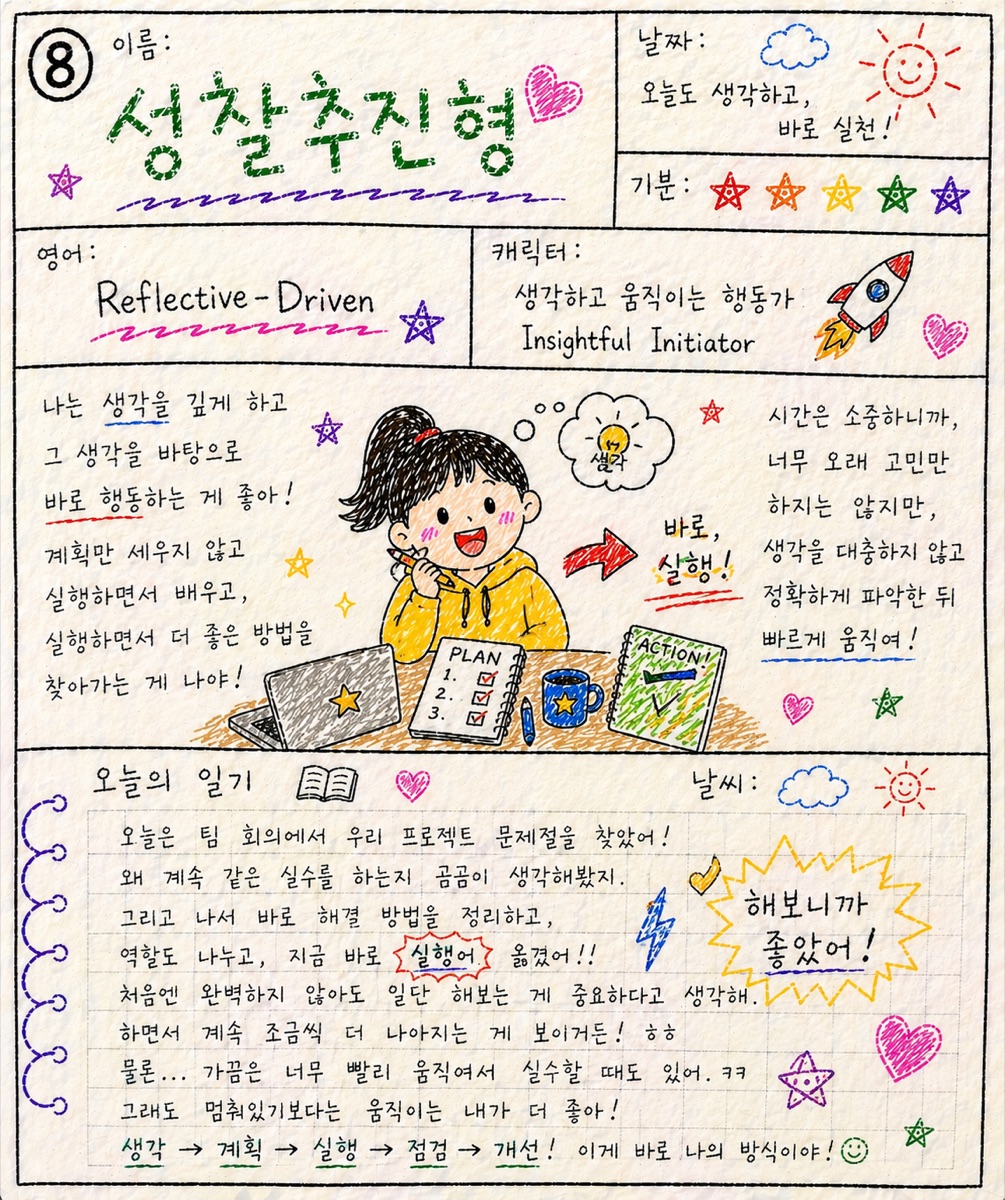 8
이름:
성찰추진형
날짜:
오늘도 생각하고,
바로 실천!
기분:
영어:
Reflective-Driven
캐릭터:
생각하고 움직이는 행동가
Insightful Initiator
나는 생각을 깊게 하고
그 생각을 바탕으로
바로 행동하는 게 좋아!
계획만 세우지 않고
실행하면서 배우고,
실행하면서 더 좋은 방법을
찾아가는 게 나야!
생각
바로,
실행!
PLAN
1.
2.
3.
ACTION!
시간은 소중하니까,
너무 오래 고민만
하지는 않지만,
생각을 대충하지 않고
정확하게 파악한 뒤
빠르게 움직여!
오늘의 일기
날씨:
오늘은 팀 회의에서 우리 프로젝트 문제절을 찾았어!
왜 계속 같은 실수를 하는지 곰곰이 생각해봤지.
그리고 나서 바로 해결 방법을 정리하고,
역할도 나누고, 지금 바로 실행어 옮겼어!!
처음엔 완벽하지 않아도 일단 해보는 게 중요하다고 생각해.
하면서 계속 조금씩 더 나아지는 게 보이거든! ㅎㅎ
물론... 가끔은 너무 빨리 움직여서 실수할 때도 있어. ㅋㅋ
그래도 멈춰있기보다는 움직이는 내가 더 좋아!
생각 → 계획 → 실행 → 점검 → 개선! 이게 바로 나의 방식이야!
해보니까
좋았어!